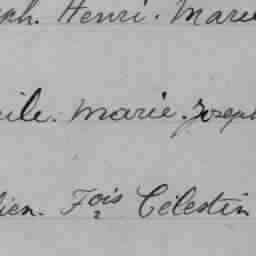 ph. Henri. Marie
ile. Marie. Joseph
ien. Fois Célestin